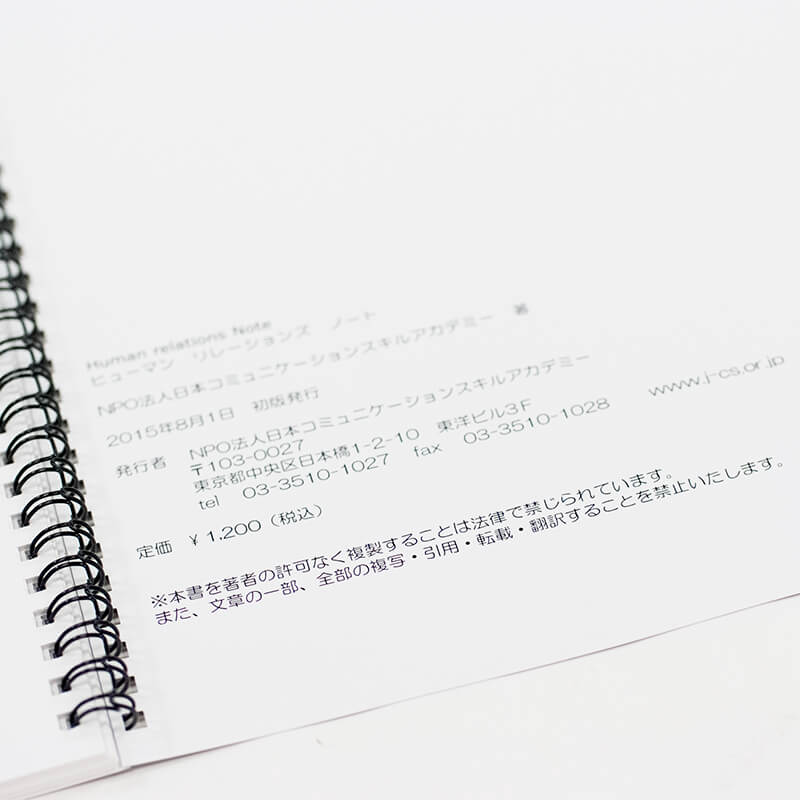 Human relations Note
ヒューマン リレーションズ ノート
NPO法人日本コミュニケーションスキルアカデミー 著
2015年8月1日 初版発行
発行者 NPO法人日本コミュニケーションスキルアカデミー
〒103-0027
東京都中央区日本橋1-2-10 東洋ビル3F
tel 03-3510-1027 fax 03-3510-1028 www.j-cs.or.jp
定価 ¥1,200（税込）
※本書を著者の許可なく複製することは法律で禁じられています。
また、文章の一部、全部の複写・引用・転載・翻訳することを禁止いたします。